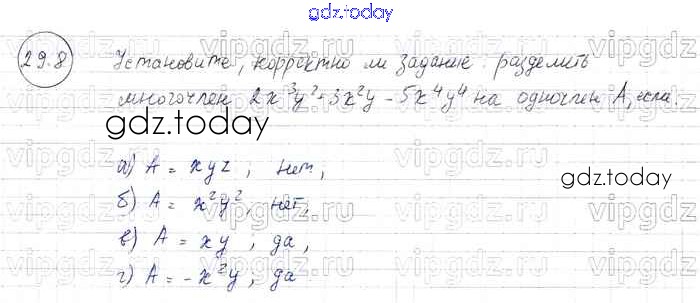 gdz.today
29.8 Установите, корректно ли задание: разделить
многочлен 2x³y²+3x²y - 5x⁴y⁴ на одночлен A, если
gdz.today
а) A = xyz; нет,
gdz.today
б) A = x²y²; нет,
в) A = xy; да,
г) A = -x²y, да
vipgdz vipgdz.ru vipgdz.ru vipgdz